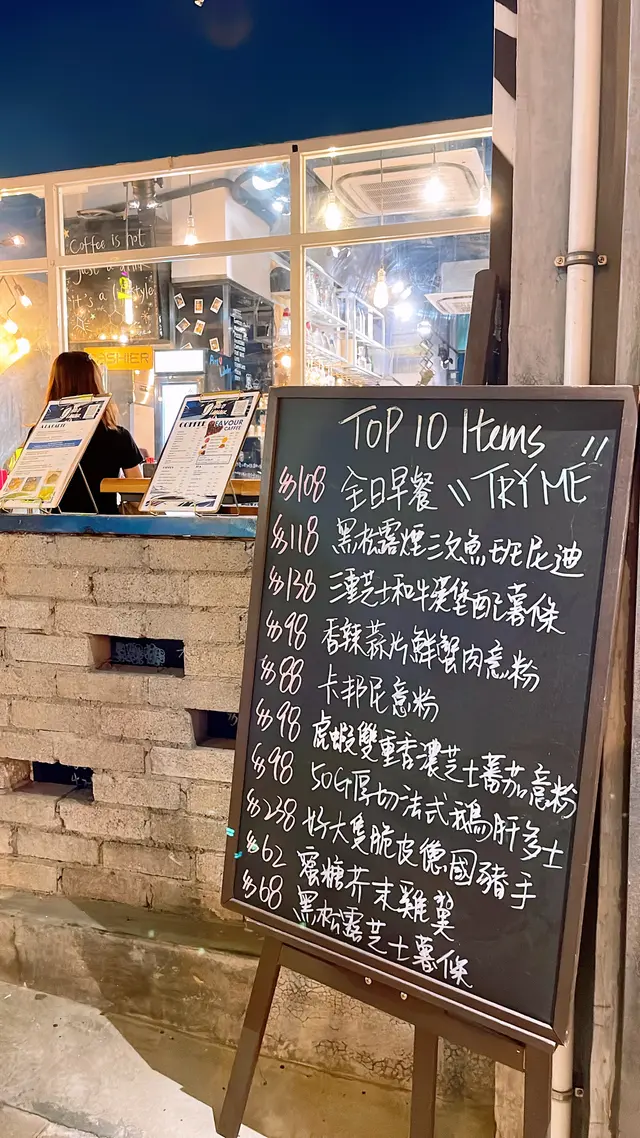 Coffee is not
just a drink
it's a lifestyle
CASHIER
À LA CARTE
COFFEE
FAVOUR
CAFFEE
TOP 10 Items
$108 全日早餐 "TRY ME"
$118 黑松露煙三文魚班尼迪
$138 三重芝士和牛漢堡配薯條
$98 香辣蒜片鮮蟹肉意粉
$88 卡邦尼意粉
$98 虎蝦雙重香濃芝士蕃茄意粉
$98 50G厚切法式鵝肝多士
$238 好大隻脆皮德國豬手
$62 蜜糖芥末雞翼
$68 黑松露芝士薯條